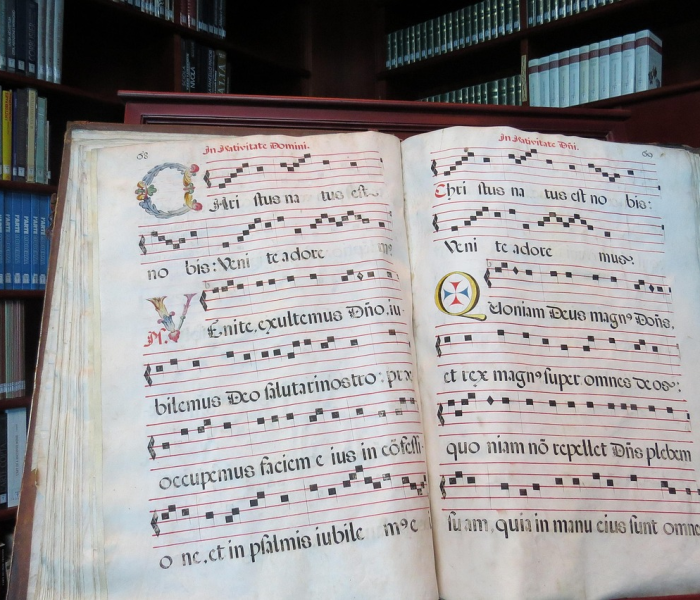 In Nativitate Domini.
C Hri stus na tus est
no bis: Veni te adore
V E nite, exultemus Dño, iu-
bilemus Deo salutarinostro:
occupemus faciem e ius in cõfessi-
o ne, et in psalmis iubile
In Nativitate Dñi.
Chri stus na tus est no bis:
Veni te adore mus:
Q eloniam Deus magnꝰ Doñs,
et rex magnꝰ super omnes deos:
quo niam nõ repellet Dñs plebem
suam, quia in manu eius sunt omne